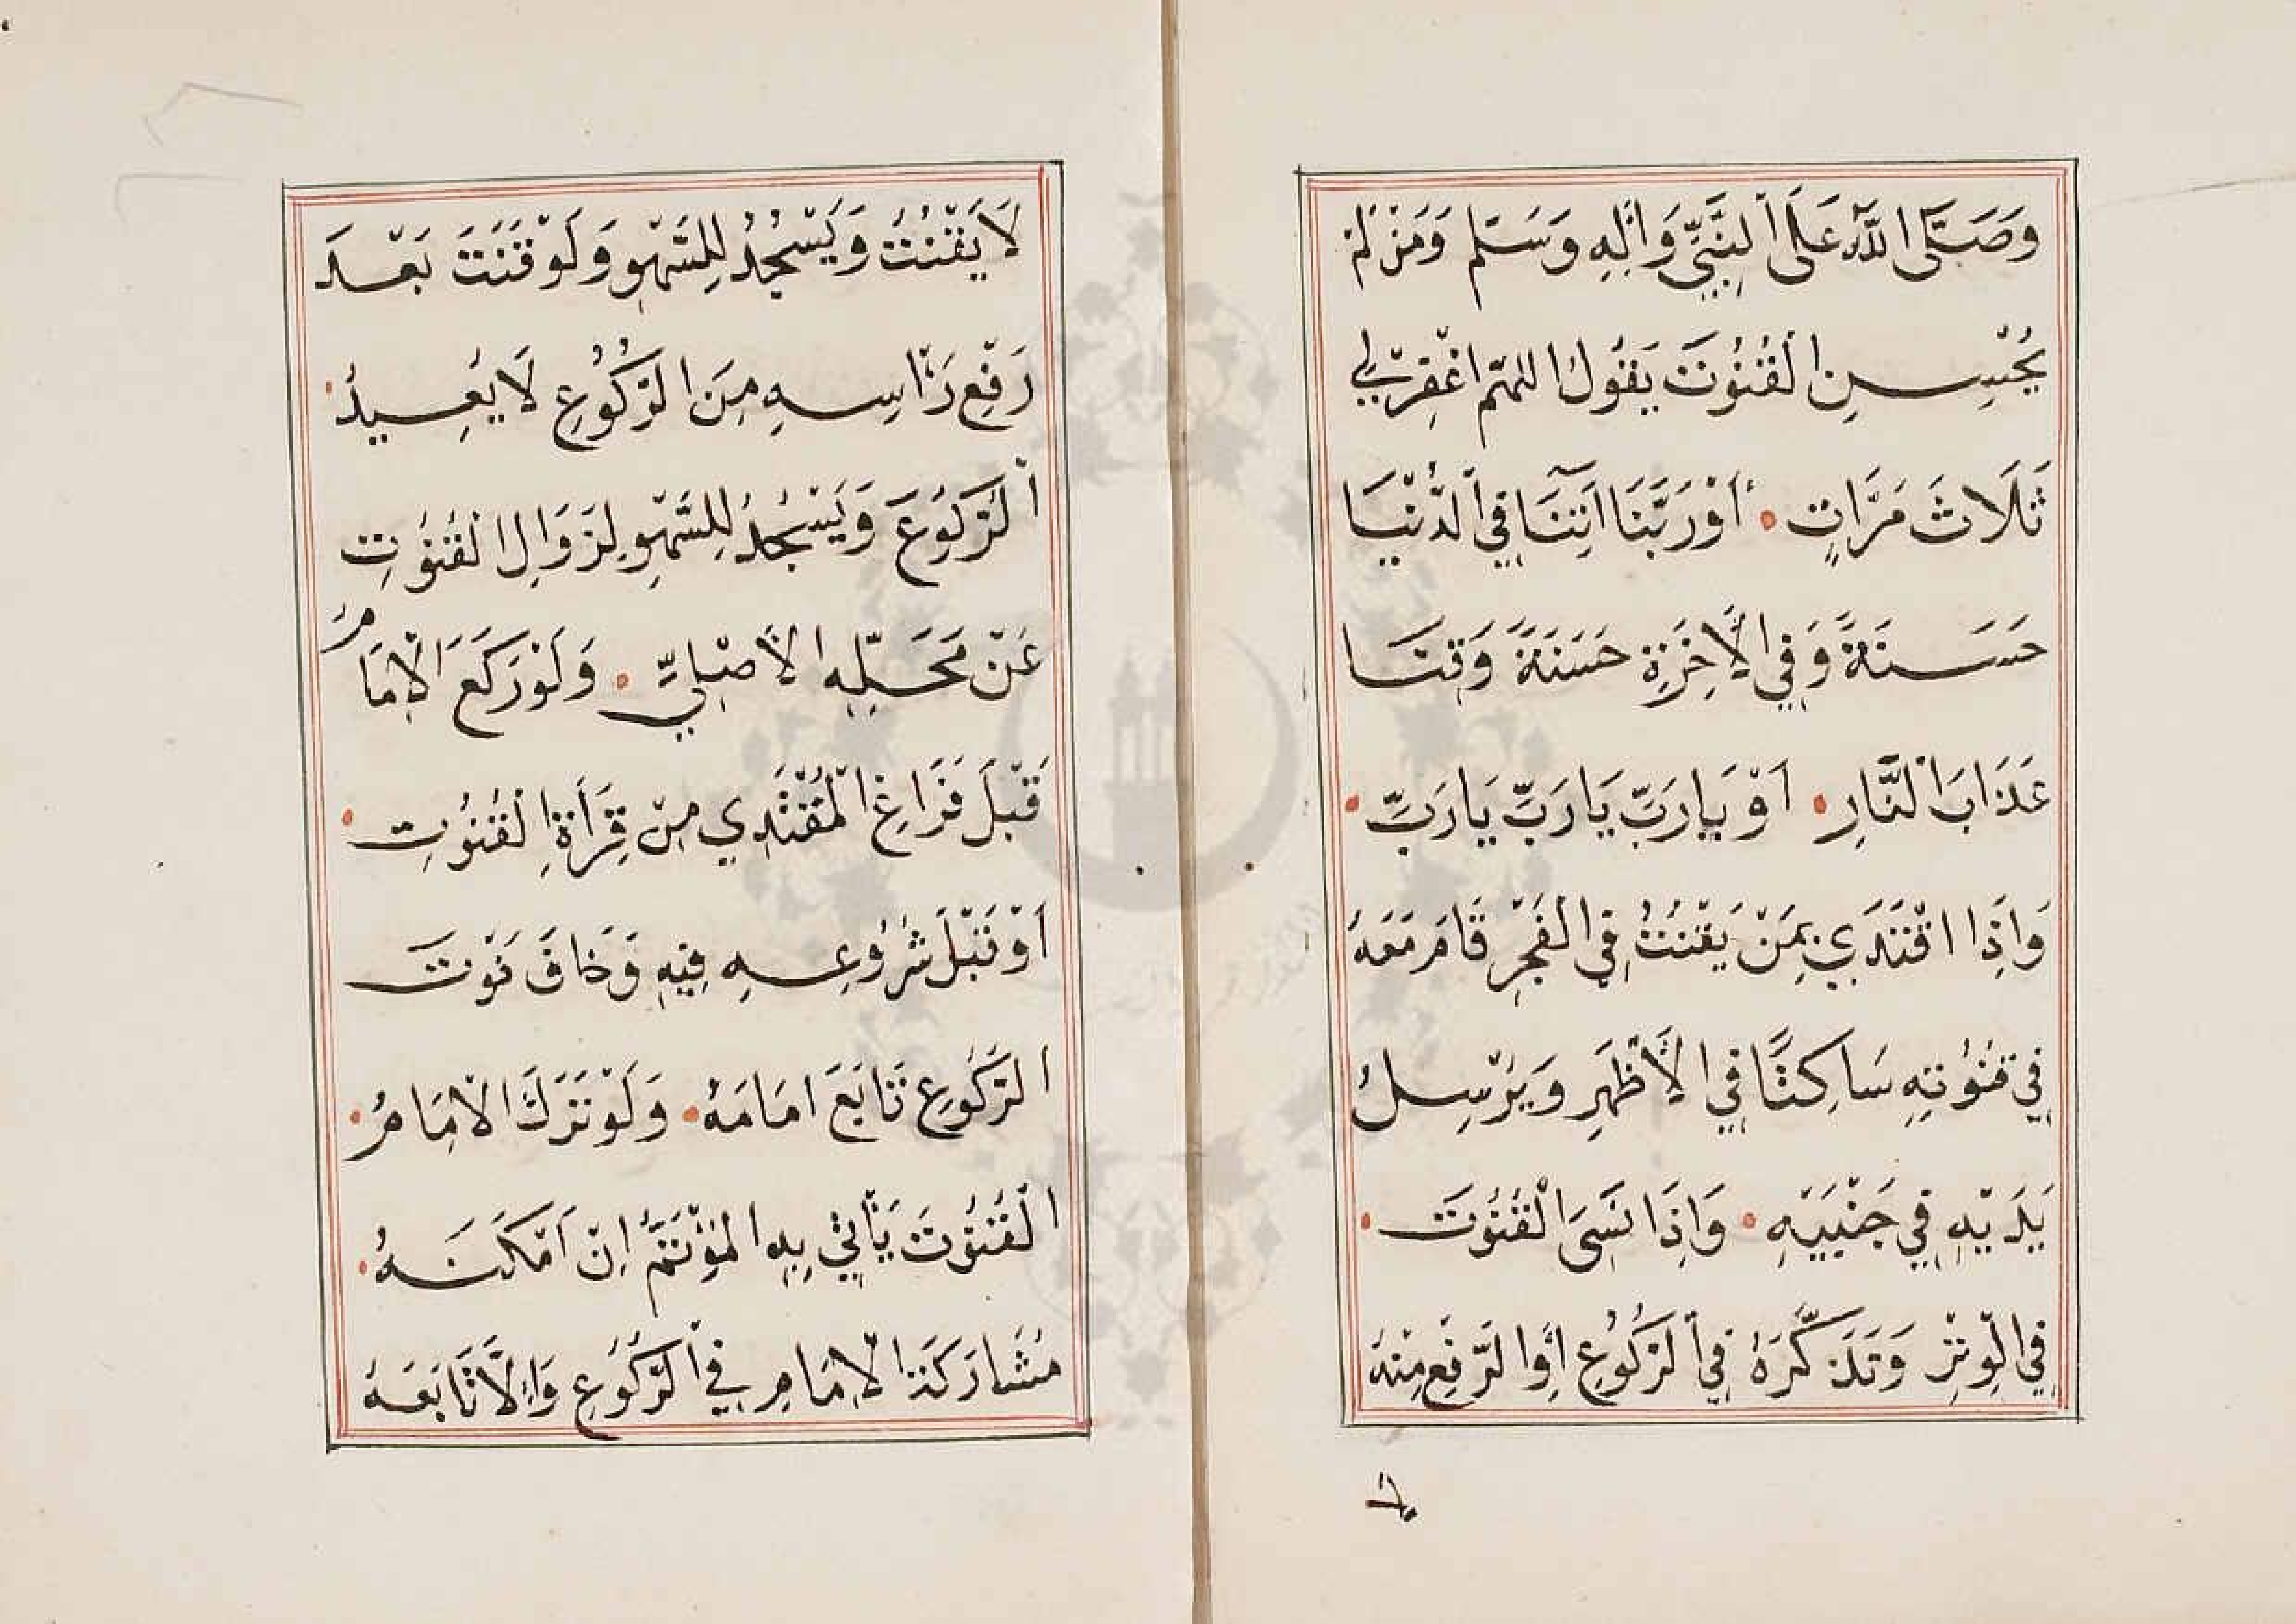 وَصَلَّى اللّٰهُ عَلَى النَّبِيِّ وَاٰلِهِ وَسَلَّم وَمَنْ لَمْ
يُحْسِنِ الْقُنُوتَ يَقُولُ اللهم اغْفِرْ لِي
ثَلَاثَ مَرَّاتٍ • اَوْ رَبَّنَا اٰتِنَا فِي الدُّنْيَا
حَسَنَةً وَفِي الْاٰخِرَةِ حَسَنَةً وَقِنَا
عَذَابَ النَّارِ • اَوْ يَارَبِّ يَارَبِّ يَارَبِّ •
وَاِذَا اقْتَدَي بِمَنْ يَقْنُتُ فِي الْفَجْرِ قَامَ مَعَهُ
فِي قُنُوتِهِ سَاكِتًا فِي الْأَظْهَرِ وَيُرْسِلُ
يَدَيْهِ فِي جَنْبَيْهِ • وَاِذَا نَسَيَ الْقُنُوتَ •
فِي الْوِتْرِ وَتَذَكَّرَهُ فِي الرُّكُوعِ أَوِ الرَّفْعِ مِنْهُ
لَا
لَا يَقْنُتُ وَيَسْجُدُ لِلسَّهْوِ وَلَوْ قَنَتَ بَعْدَ
رَفْعِ رَأْسِهِ مِنَ الرُّكُوعِ لَا يُعِيدُ •
الرُّكُوعَ وَيَسْجُدُ لِلسَّهْوِ لِزَوَالِ الْقُنُوتِ
عَنْ مَحَلِّهِ الْأَصْلِيِّ • وَلَوْ رَكَعَ الْاِمَامُ
قَبْلَ فَرَاغِ الْمُقْتَدِي مِنْ قِرَأَةِ الْقُنُوتِ •
اَوْ قَبْلَ شُرُوعِهِ فِيهِ وَخَافَ فَوْتَ
الرُّكُوعِ تَابَعَ اِمَامَهُ • وَلَوْ تَرَكَ الْاِمَامُ •
الْقُنُوتَ يَأْتِي بِهِ الْمُؤْتَمُّ اِنْ اَمْكَنَهُ •
مُشَارَكَةُ الْاِمَامِ فِي الرُّكُوعِ وَاِلَّا تَابَعَهُ